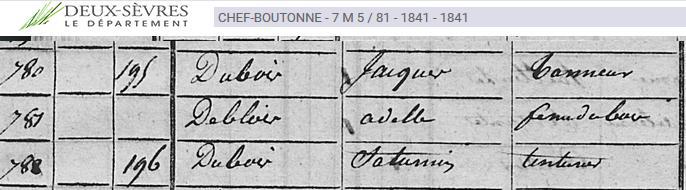 DEUX-SÈVRES
LE DÉPARTEMENT
CHEF-BOUTONNE - 7 M 5 / 81 - 1841 - 1841
780 195 Dubois Jacques tanneur
781 Deblois adelle femme dubois
782 196 Dubois Saturnin